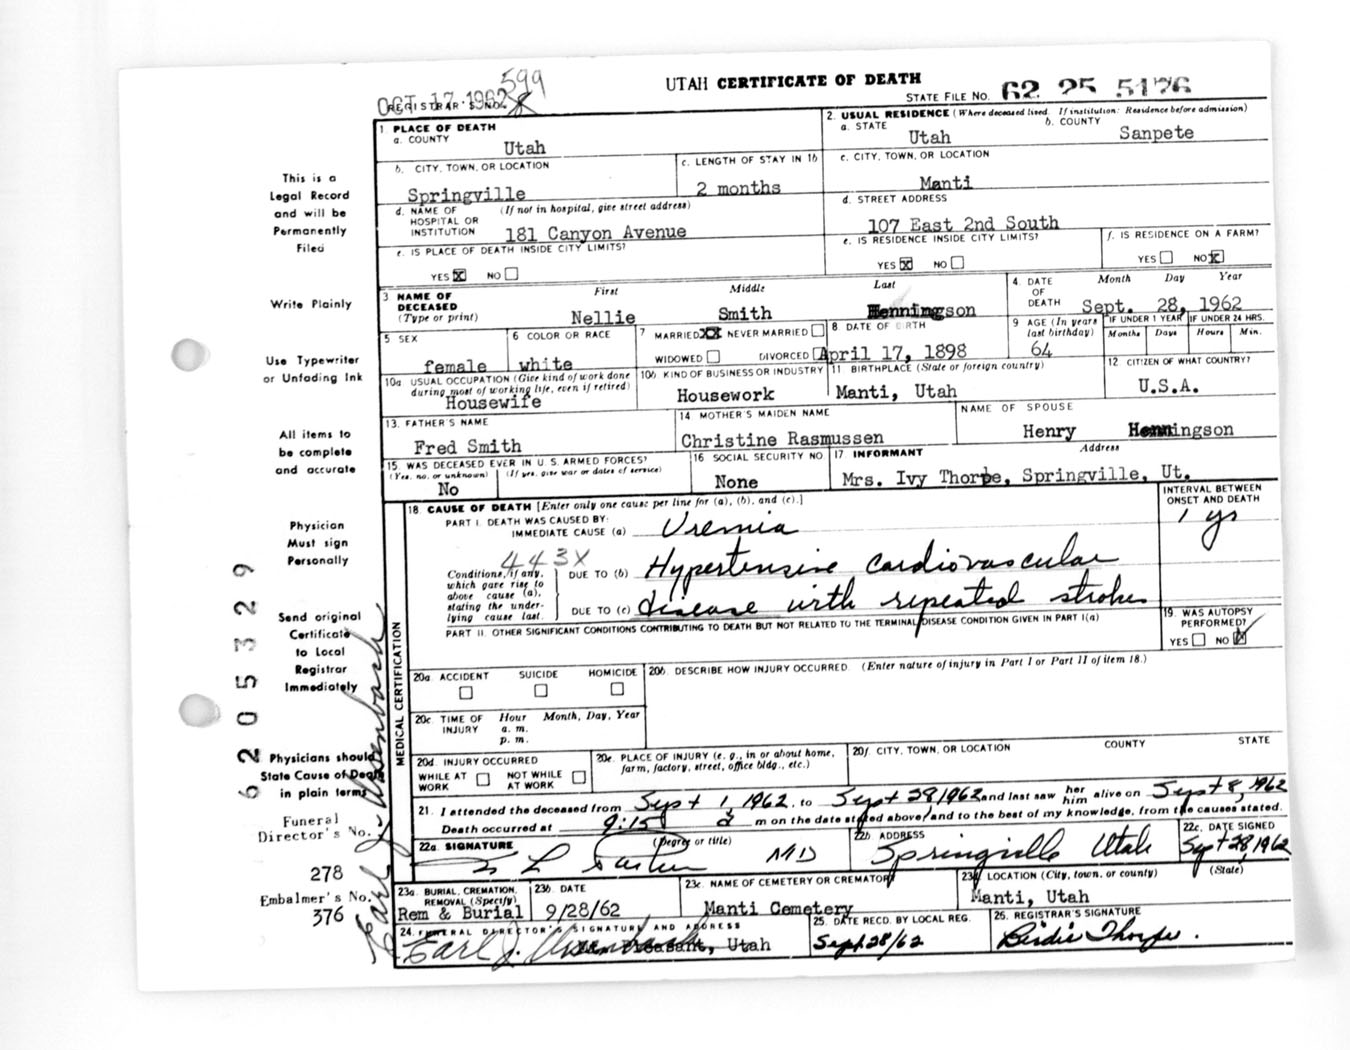 OCT 17 1962 599
UTAH CERTIFICATE OF DEATH
REGISTRAR'S NO. 8
STATE FILE NO. 62 25 5176
1. PLACE OF DEATH
a. COUNTY
Utah
2. USUAL RESIDENCE (Where deceased lived. If institution: Residence before admission)
a. STATE
Utah
b. COUNTY
Sanpete
b. CITY, TOWN, OR LOCATION
Springville
c. LENGTH OF STAY IN 1b
2 months
c. CITY, TOWN, OR LOCATION
Manti
d. NAME OF HOSPITAL OR INSTITUTION (If not in hospital, give street address)
181 Canyon Avenue
d. STREET ADDRESS
107 East 2nd South
e. IS PLACE OF DEATH INSIDE CITY LIMITS?
YES X NO
e. IS RESIDENCE INSIDE CITY LIMITS?
YES X NO
f. IS RESIDENCE ON A FARM?
YES NO X
3. NAME OF DECEASED (Type or print)
First Middle Last
Nellie Smith Henningson
4. DATE OF DEATH Month Day Year
Sept. 28, 1962
5 SEX
female
6 COLOR OR RACE
white
7 MARRIED XX NEVER MARRIED
WIDOWED DIVORCED
8 DATE OF BIRTH
April 17, 1898
9 AGE (In years last birthday)
64
IF UNDER 1 YEAR IF UNDER 24 HRS.
Months Days Hours Min.
10a. USUAL OCCUPATION (Give kind of work done during most of working life, even if retired)
Housewife
10b. KIND OF BUSINESS OR INDUSTRY
Housework
11 BIRTHPLACE (State or foreign country)
Manti, Utah
12 CITIZEN OF WHAT COUNTRY?
U.S.A.
13. FATHER'S NAME
Fred Smith
14 MOTHER'S MAIDEN NAME
Christine Rasmussen
NAME OF SPOUSE
Henry Henningson
15. WAS DECEASED EVER IN U.S. ARMED FORCES?
(Yes, no, or unknown) (If yes, give war or dates of service)
No
16 SOCIAL SECURITY NO.
None
17. INFORMANT Address
Mrs. Ivy Thorpe, Springville, Ut.
18. CAUSE OF DEATH [Enter only one cause per line for (a), (b), and (c).]
INTERVAL BETWEEN ONSET AND DEATH
PART I. DEATH WAS CAUSED BY:
IMMEDIATE CAUSE (a) Uremia
1 yr
443X
Conditions, if any, which gave rise to above cause (a), stating the underlying cause last.
DUE TO (b) Hypertensive cardiovascular
DUE TO (c) disease with repeated strokes
PART II. OTHER SIGNIFICANT CONDITIONS CONTRIBUTING TO DEATH BUT NOT RELATED TO THE TERMINAL DISEASE CONDITION GIVEN IN PART I(a)
19. WAS AUTOPSY PERFORMED?
YES NO X
MEDICAL CERTIFICATION
20a. ACCIDENT SUICIDE HOMICIDE
20b. DESCRIBE HOW INJURY OCCURRED. (Enter nature of injury in Part I or Part II of item 18.)
20c. TIME OF INJURY Hour Month, Day, Year
a. m.
p. m.
20d. INJURY OCCURRED
WHILE AT WORK NOT WHILE AT WORK
20e. PLACE OF INJURY (e. g., in or about home, farm, factory, street, office bldg., etc.)
20f. CITY, TOWN, OR LOCATION COUNTY STATE
21. I attended the deceased from Sept 1, 1962, to Sept 28 1962 and last saw her him alive on Sept 8, 1962
Death occurred at 9:15 a m on the date stated above, and to the best of my knowledge, from the causes stated.
22a. SIGNATURE (Degree or title)
MD
22b ADDRESS
Springville Utah
22c. DATE SIGNED
Sept 28, 1962
23a. BURIAL, CREMATION, REMOVAL (Specify)
Rem & Burial
23b. DATE
9/28/62
23c. NAME OF CEMETERY OR CREMATORY
Manti Cemetery
23d LOCATION (City, town, or county) (State)
Manti, Utah
24. FUNERAL DIRECTOR'S SIGNATURE AND ADDRESS
Earl J. Utah
25. DATE RECD. BY LOCAL REG.
Sept 28/62
26. REGISTRAR'S SIGNATURE
Birdie Thorpe.
This is a
Legal Record
and will be
Permanently
Filed
Write Plainly
Use Typewriter
or Unfading Ink
All items to
be complete
and accurate
Physician
Must sign
Personally
Send original
Certificate
to Local
Registrar
Immediately
Physicians should
State Cause of Death
in plain terms
Funeral
Director's No.
278
Embalmer's No.
376
6205329
Earl J.